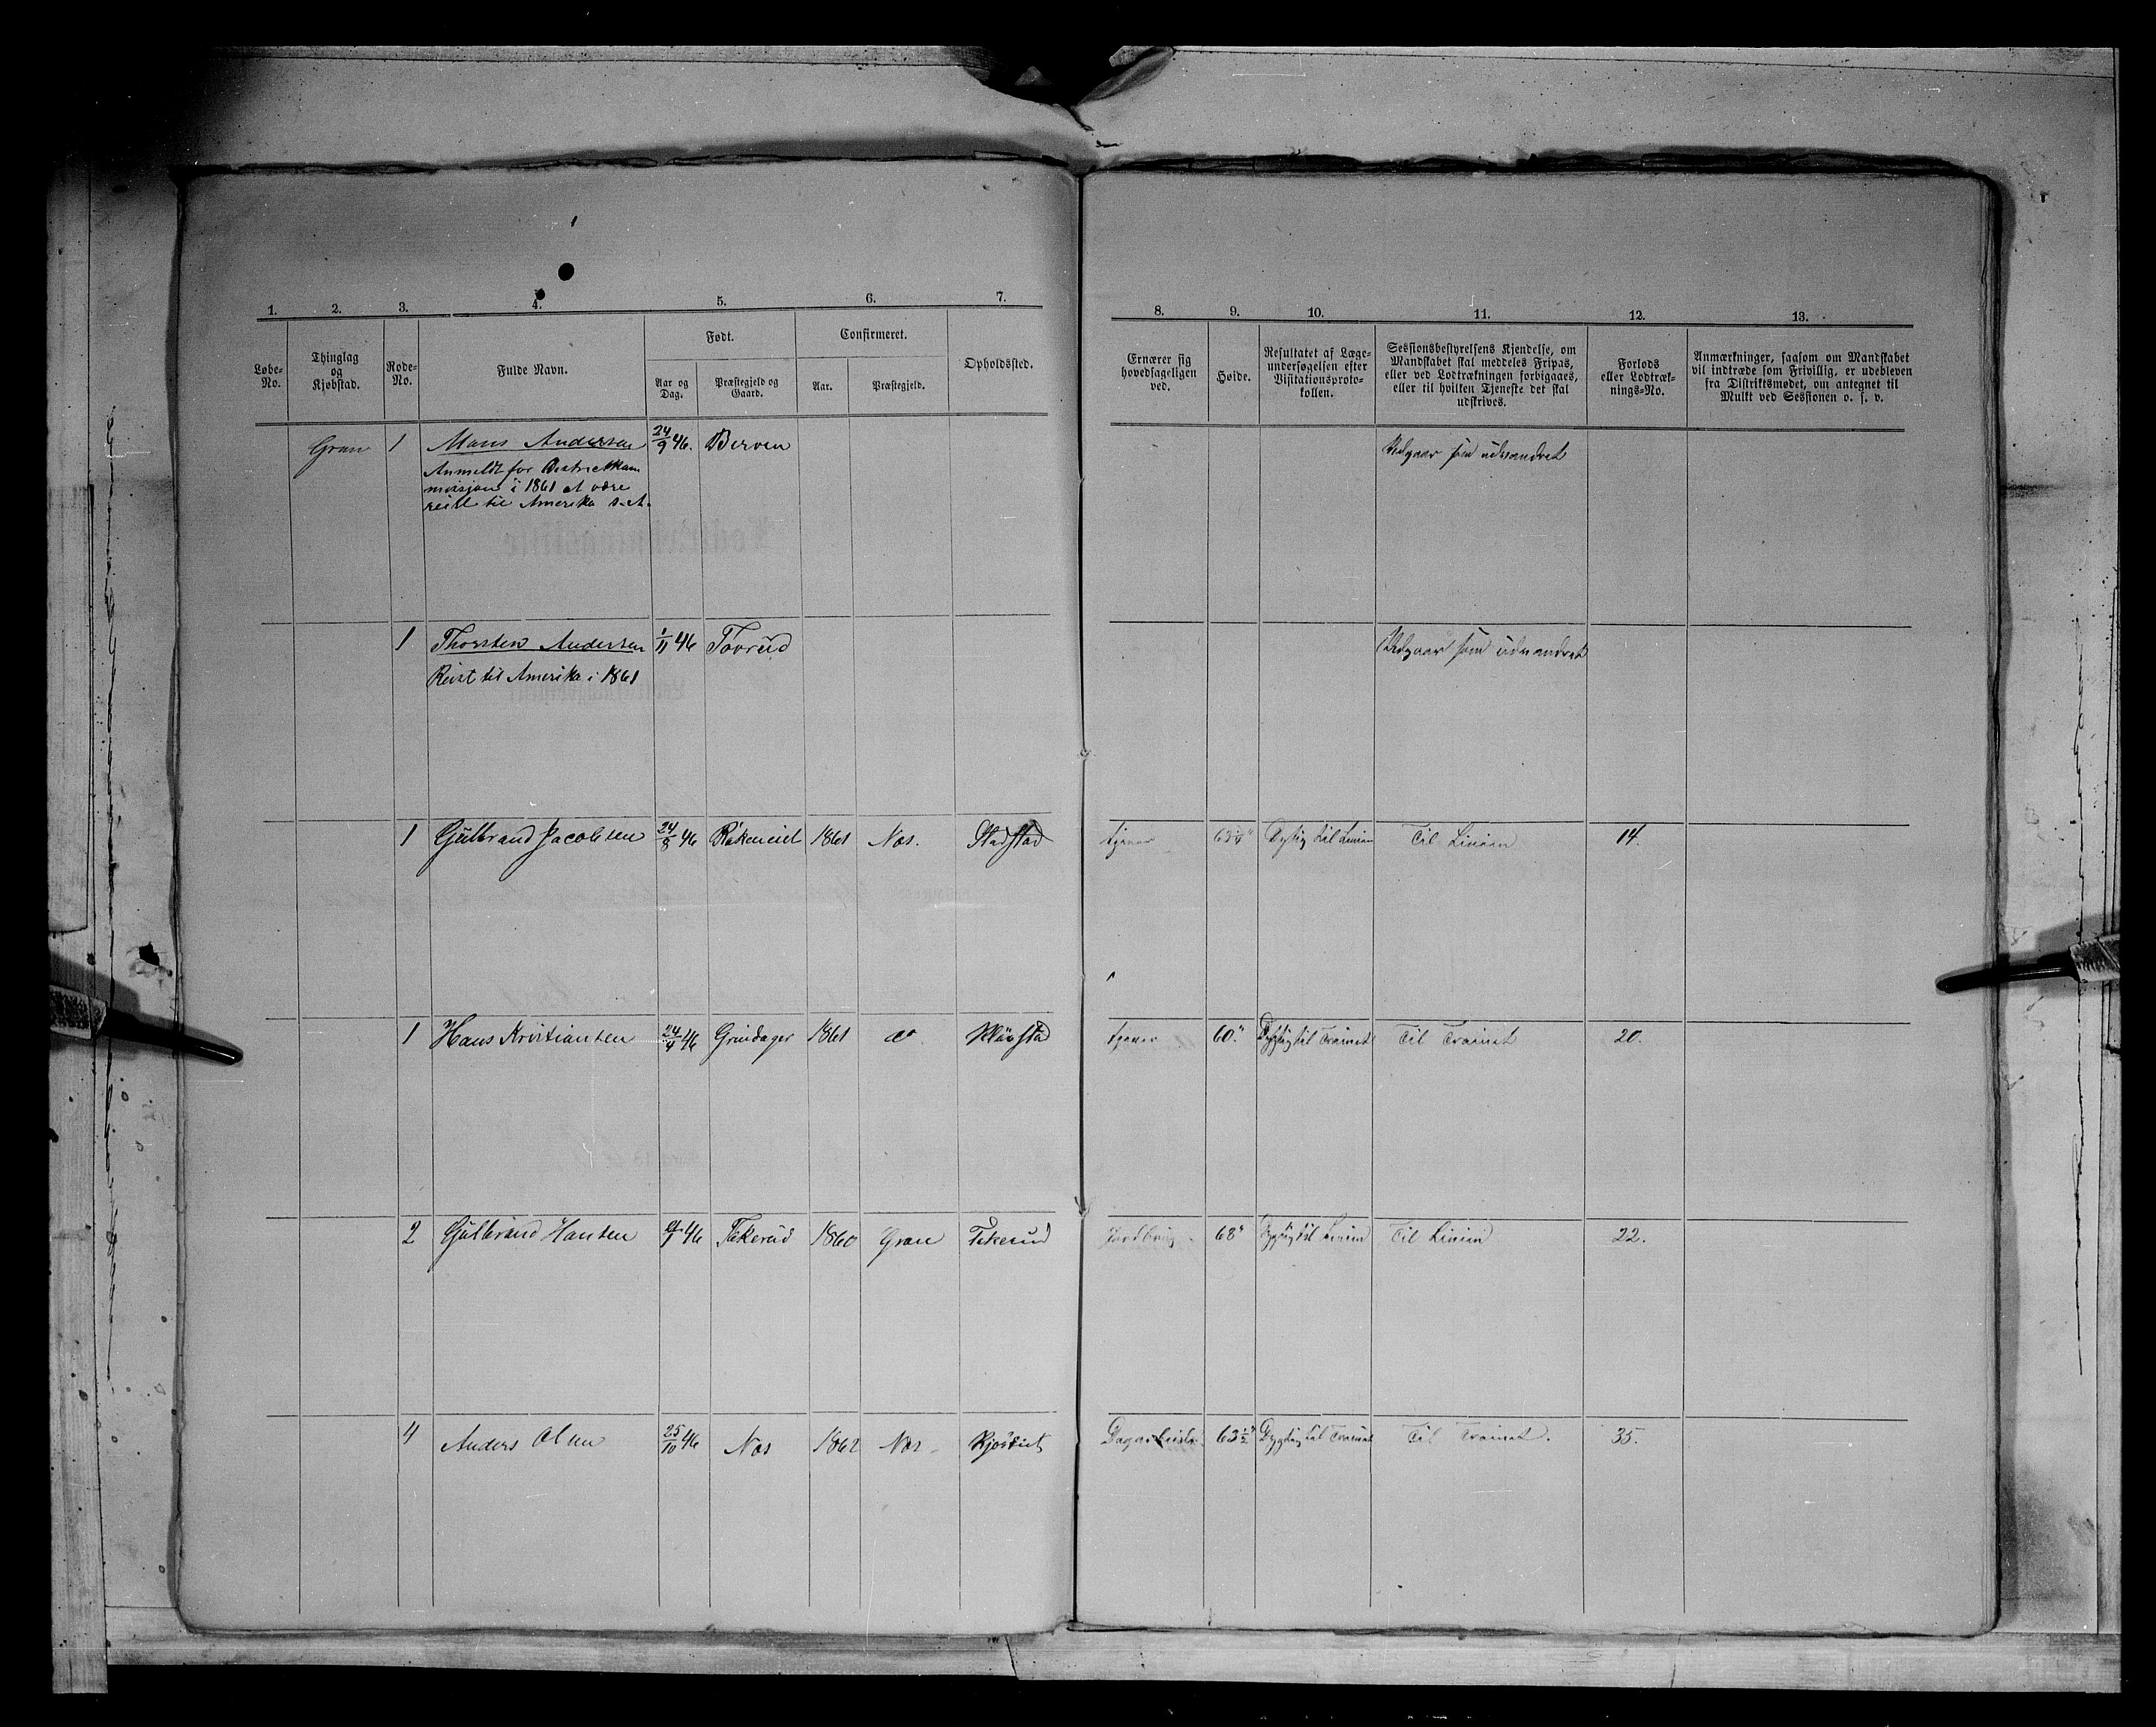 1. 2. 3. 4. 5. 6. 7. 8. 9. 10. 11. 12. 13.
Løbe-No.
Thinglag og Kjøbstad.
Rode-No.
Fulde Navn.
Født.
Aar og Dag.
Præstegjeld og Gaard.
Confirmeret.
Aar.
Præstegjeld.
Opholdssted.
Ernærer sig hovedsageligen ved.
Høide.
Resultatet af Læge-undersøgelsen efter Visitationsproto-kollen.
Sessionsbestyrelsens Kjendelse, om Mandskabet skal meddeles Fripas, eller ved Lodtrækningen forbigaaes, eller til hvilken Tjeneste det skal udskrives.
Forlods eller Lodtræk-nings-No.
Anmærkninger, saasom om Mandskabet vil indtræde som Frivillig, er udebleven fra Distriktsmødet, om antegnet til Mulkt ved Sessionen o. s. v.
Gran 1 Mons Andersen 24/9 46. Berven Udgaar som udvandret
Anmeldt for Districtkom
missjon i 1861 at være
reist til Amerika s. A.
1 Thorsten Andersen 1/11 46 Tovrud Udgaar som udvandret
Reist til Amerika i 1861
1 Gulbrand Jacobsen 24/8 46 1861 Næs. Stadstad tjener 63 1/4" Dygtig til Linien Til Linien 14.
1 Hans Kristiansen 24/4 46 Grindager 1861 tjener 60." Dygtig til Trainet Til Trainet 20.
2 Gulbrand Hansen 46 Tekerud 1860 Gran Tekerud Jordbrug 68" Dygtig til Linien Til Linien 22.
4 Anders Olsen 25/10 46 Næs 1862 Næs 63 1/2" Dygtig til Trainet Til Trainet. 35.